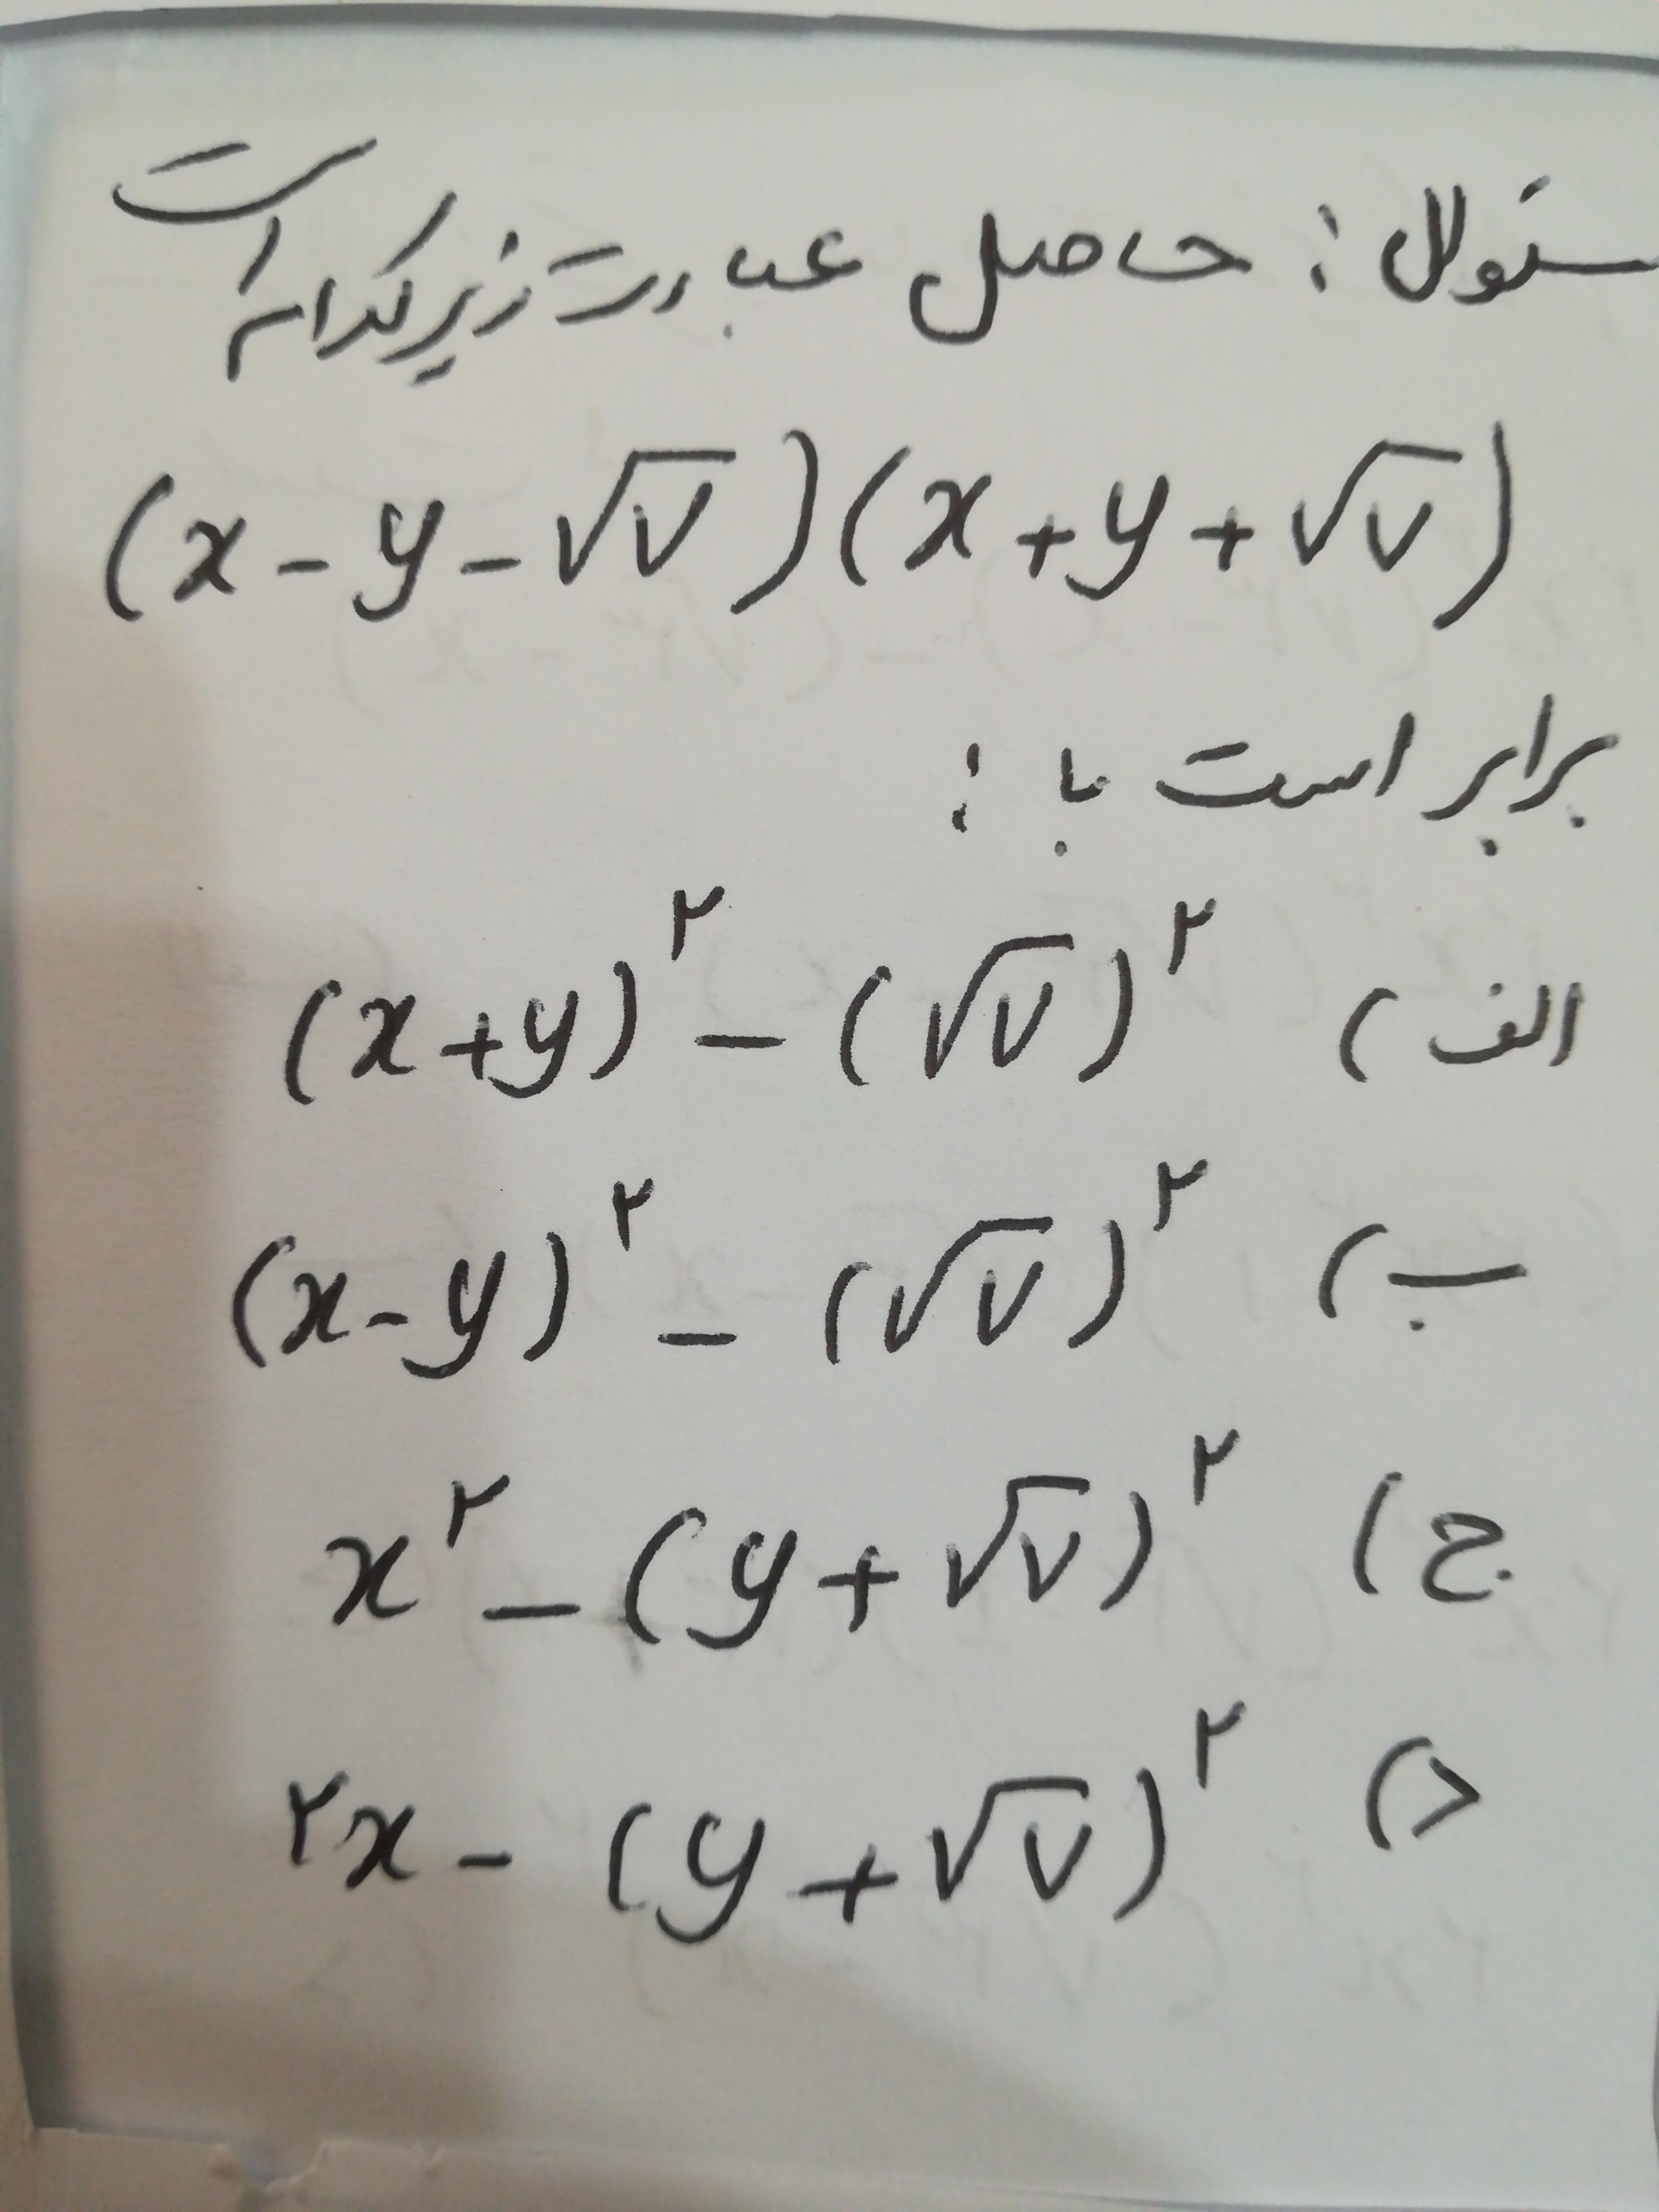 سئوال: حاصل عبارت زیر کدام است
(x-y-√۷)(x+y+√۷)
برابر است با:
الف) (x+y)^۲-(√۷)^۲
ب) (x-y)^۲-(√۷)^۲
ج) x^۲-(y+√۷)^۲
د) ۲x-(y+√۷)^۲